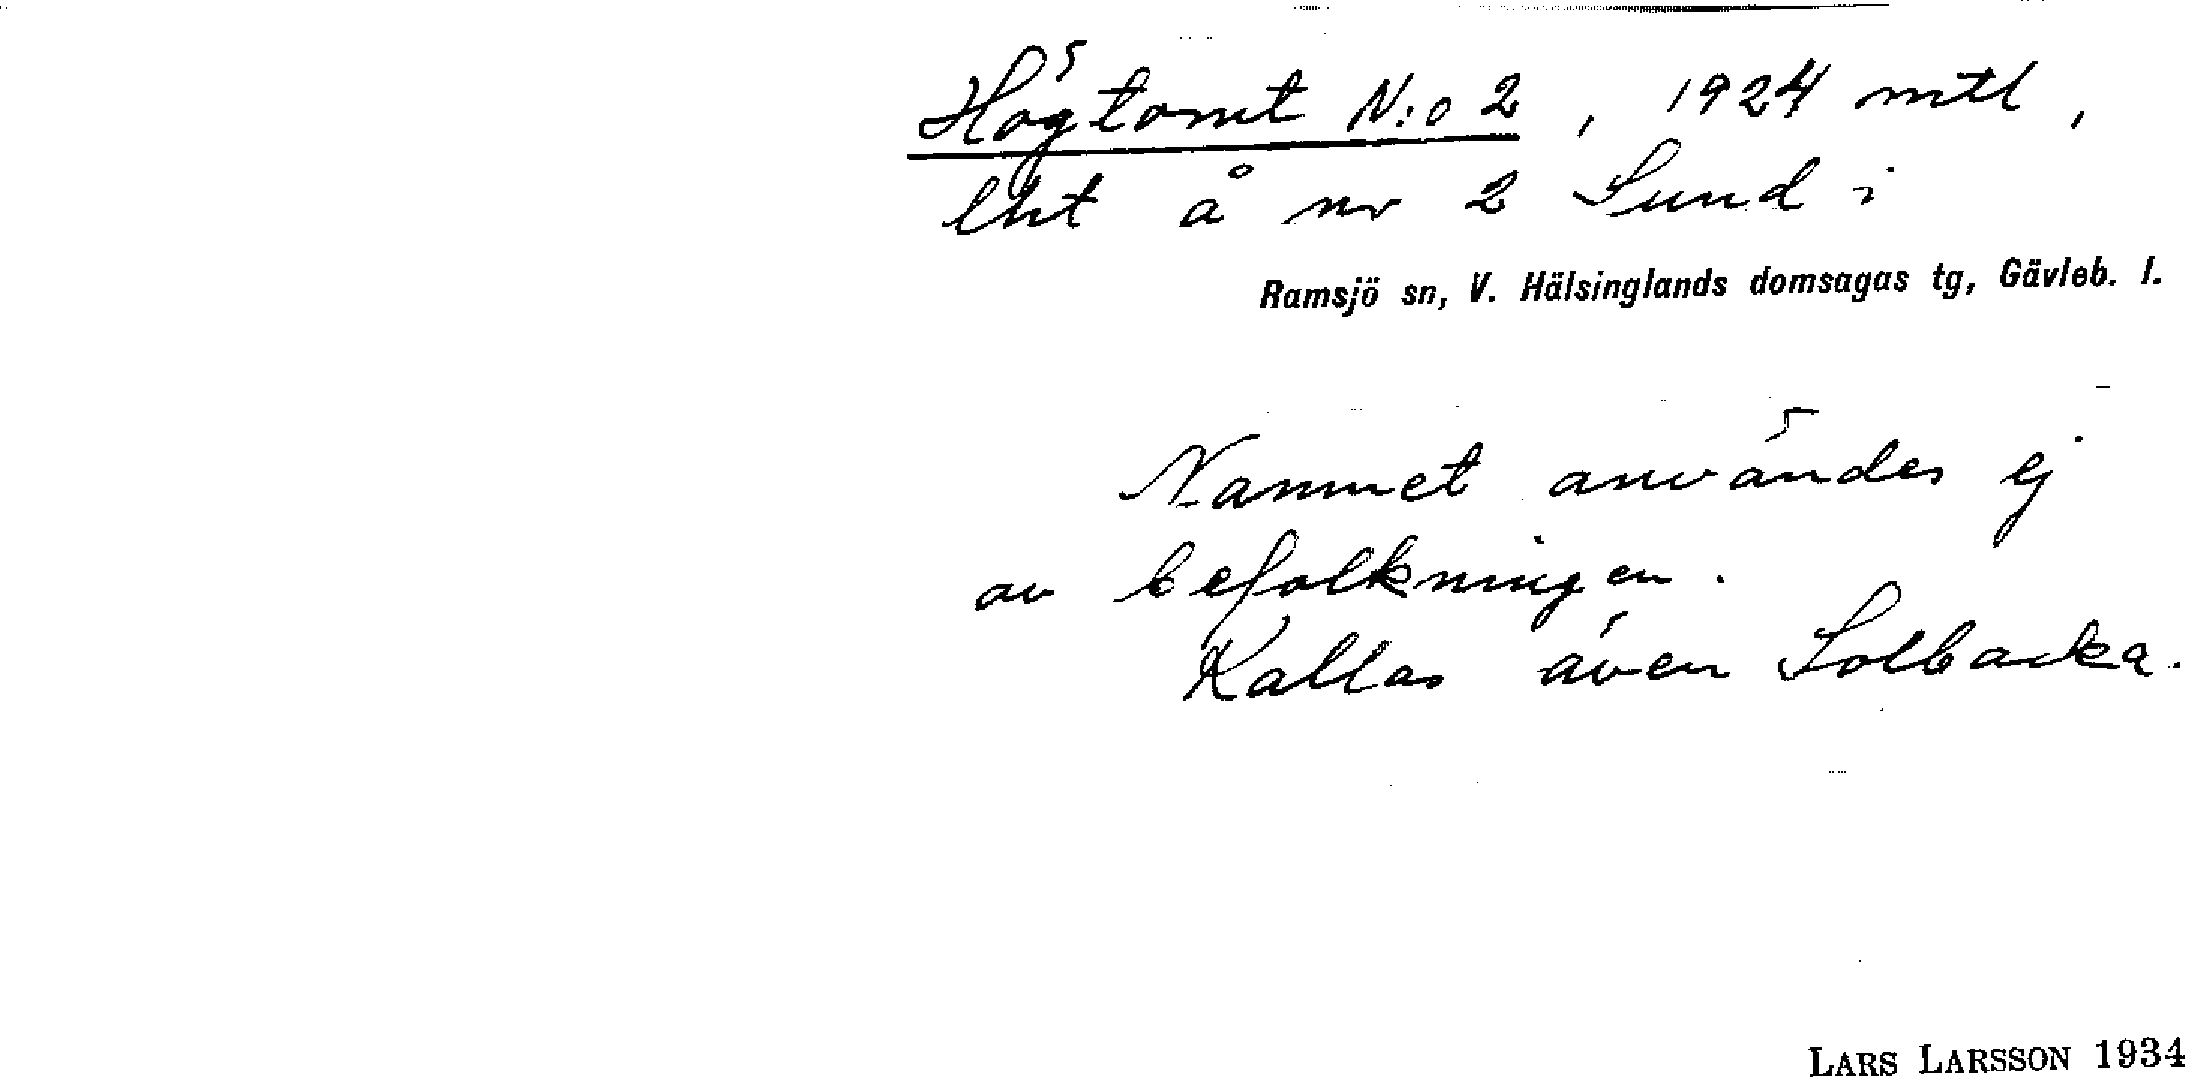 Högtomt N:o 2, 1924 mtl,
lht å nr 2 Sund i
Ramsjö sn, V. Hälsinglands domsagas tg, Gävleb. l.
Namnet användes ej
av befolkningen.
Kallas även Solbacka.
LARS LARSSON 1934